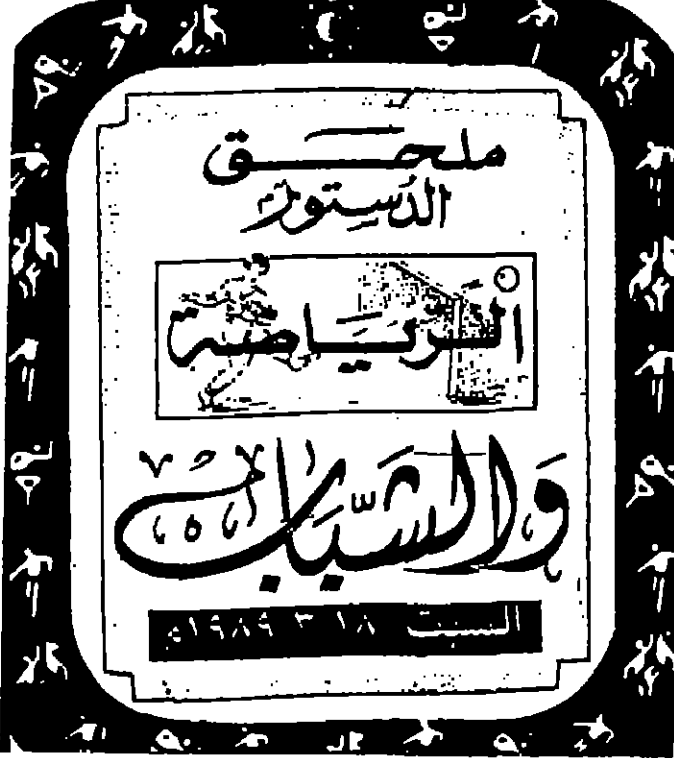 ملحق
الدستور
الرياضة
والشباب
السبت ١٨ ٣ ١٩٨٩م